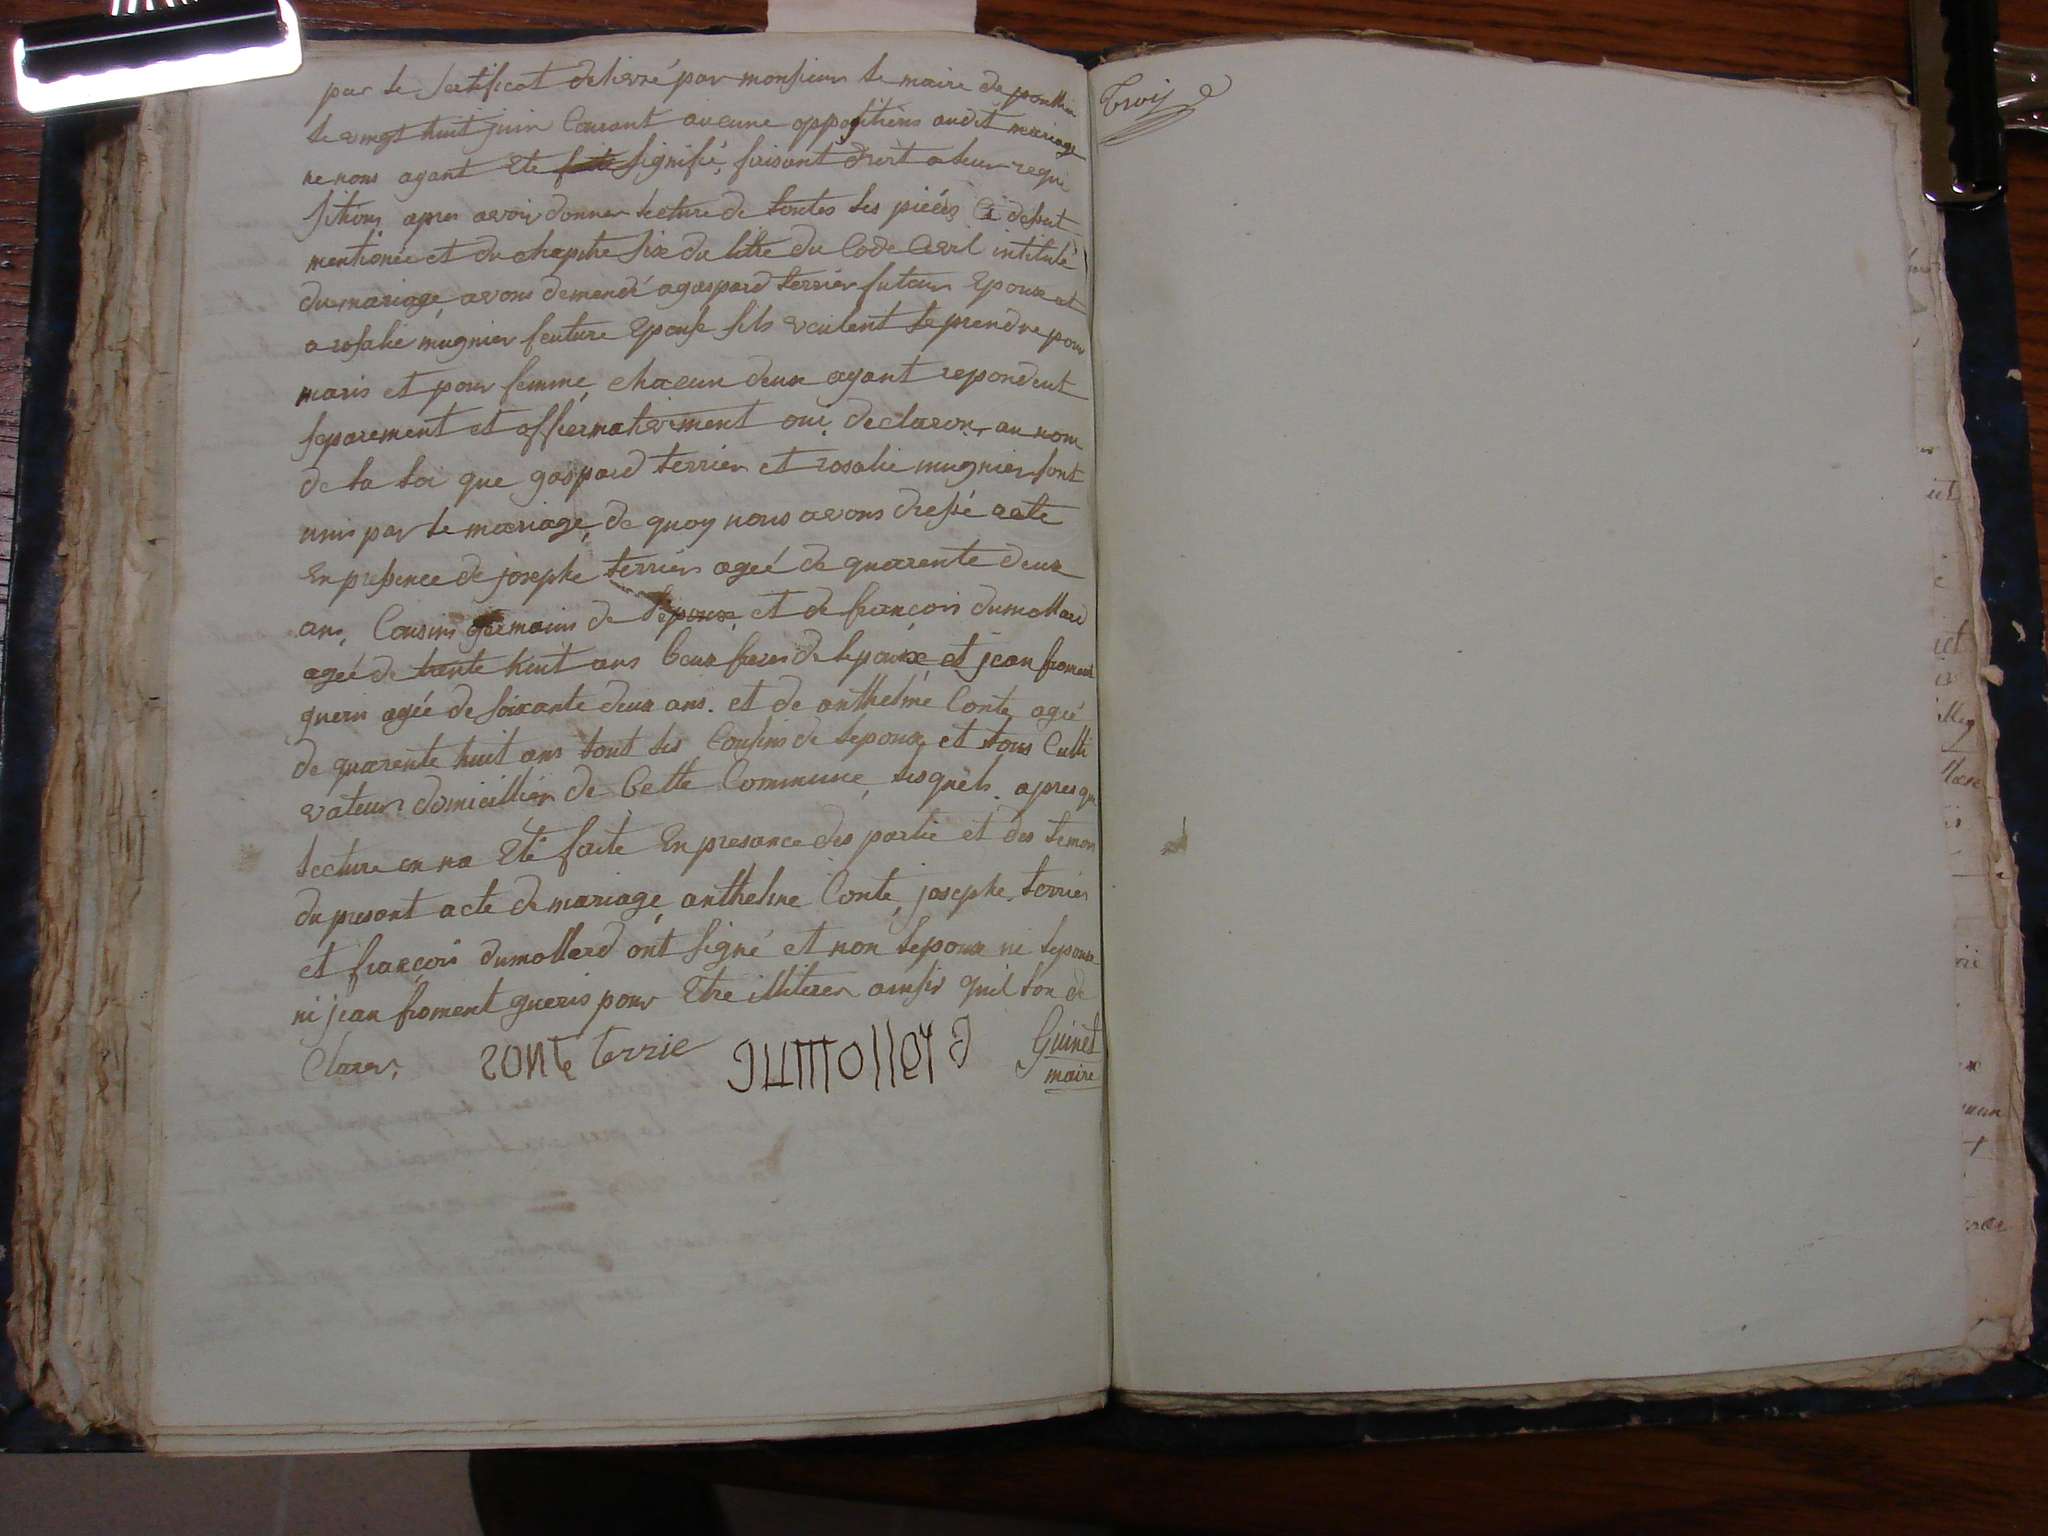 par le sertificat delivré par monsieur le maire de
le vingt huit juin Courant aucune oppositions audit mariage
ne nous ayant Eté signifié, faisant droit a leur requi
sitions apres avoir donner lecture de toutes les piéces Ci dessut
mentionée et du chapitre six du titre du Code Civil intitulé
du mariage, avons demendé a gaspard terrier futeur Epoux et
a rosalie mugnier feuture Epouse sils veulent se prendre pour
maris et pour femme, chacun deux ayant repondeut
separement et affiermativement oui, declaron, au nom
de la loi que gaspard terrier et rosalie mugnier sont
unis par le mariage, de quoy nous avons dressé acte
En presence de josephe terrier ageé de quarente deux
ans, Cousins germains de lepoux, et de françois dumollard
ageé de trante huit ans beux freres de lepouxe et jean froment
guerin ageé de soixante deux ans. et de anthelme Conte, ageé
de quarente huit ans tout les Cousins de lepoux, et tous Culti
vateur domicillier de Cette Commune, lesquels. apres que
lecture en na Eté faite En presance des partie et des temon
du presant acte de mariage, anthelme Conte, josephe terrier
et françois dumollard ont signé et non lepoux ni lepouse
ni jean froment gueris pour Etre illiterer ainsis quil lon de
Clarer, CONTE terrie dumollard Guinet
maire
Trois